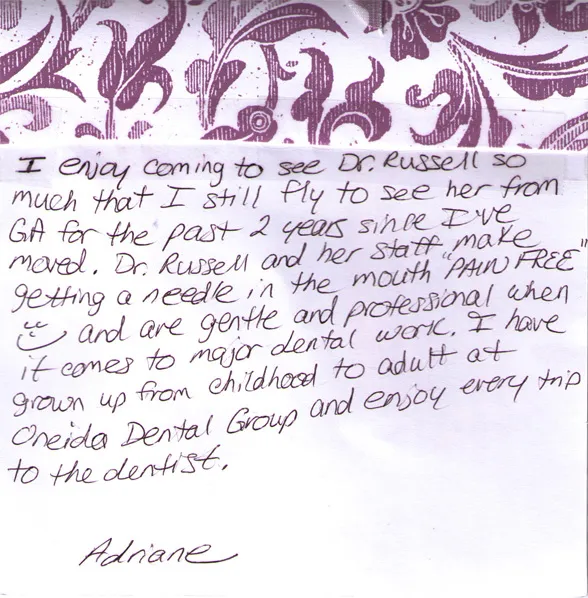 I enjoy coming to see Dr. Russell so
much that I still fly to see her from
GA for the past 2 years since I've
moved. Dr. Russell and her staff make
getting a needle in the mouth "PAIN FREE"
and are gentle and professional when
it comes to major dental work. I have
grown up from childhood to adult at
Oneida Dental Group and enjoy every trip
to the dentist.
Adriane